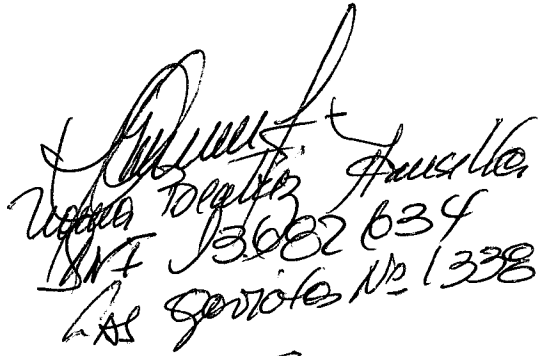 Norma Beatriz Mansilla
DNI 13682634
Las Gaviotas No 1338